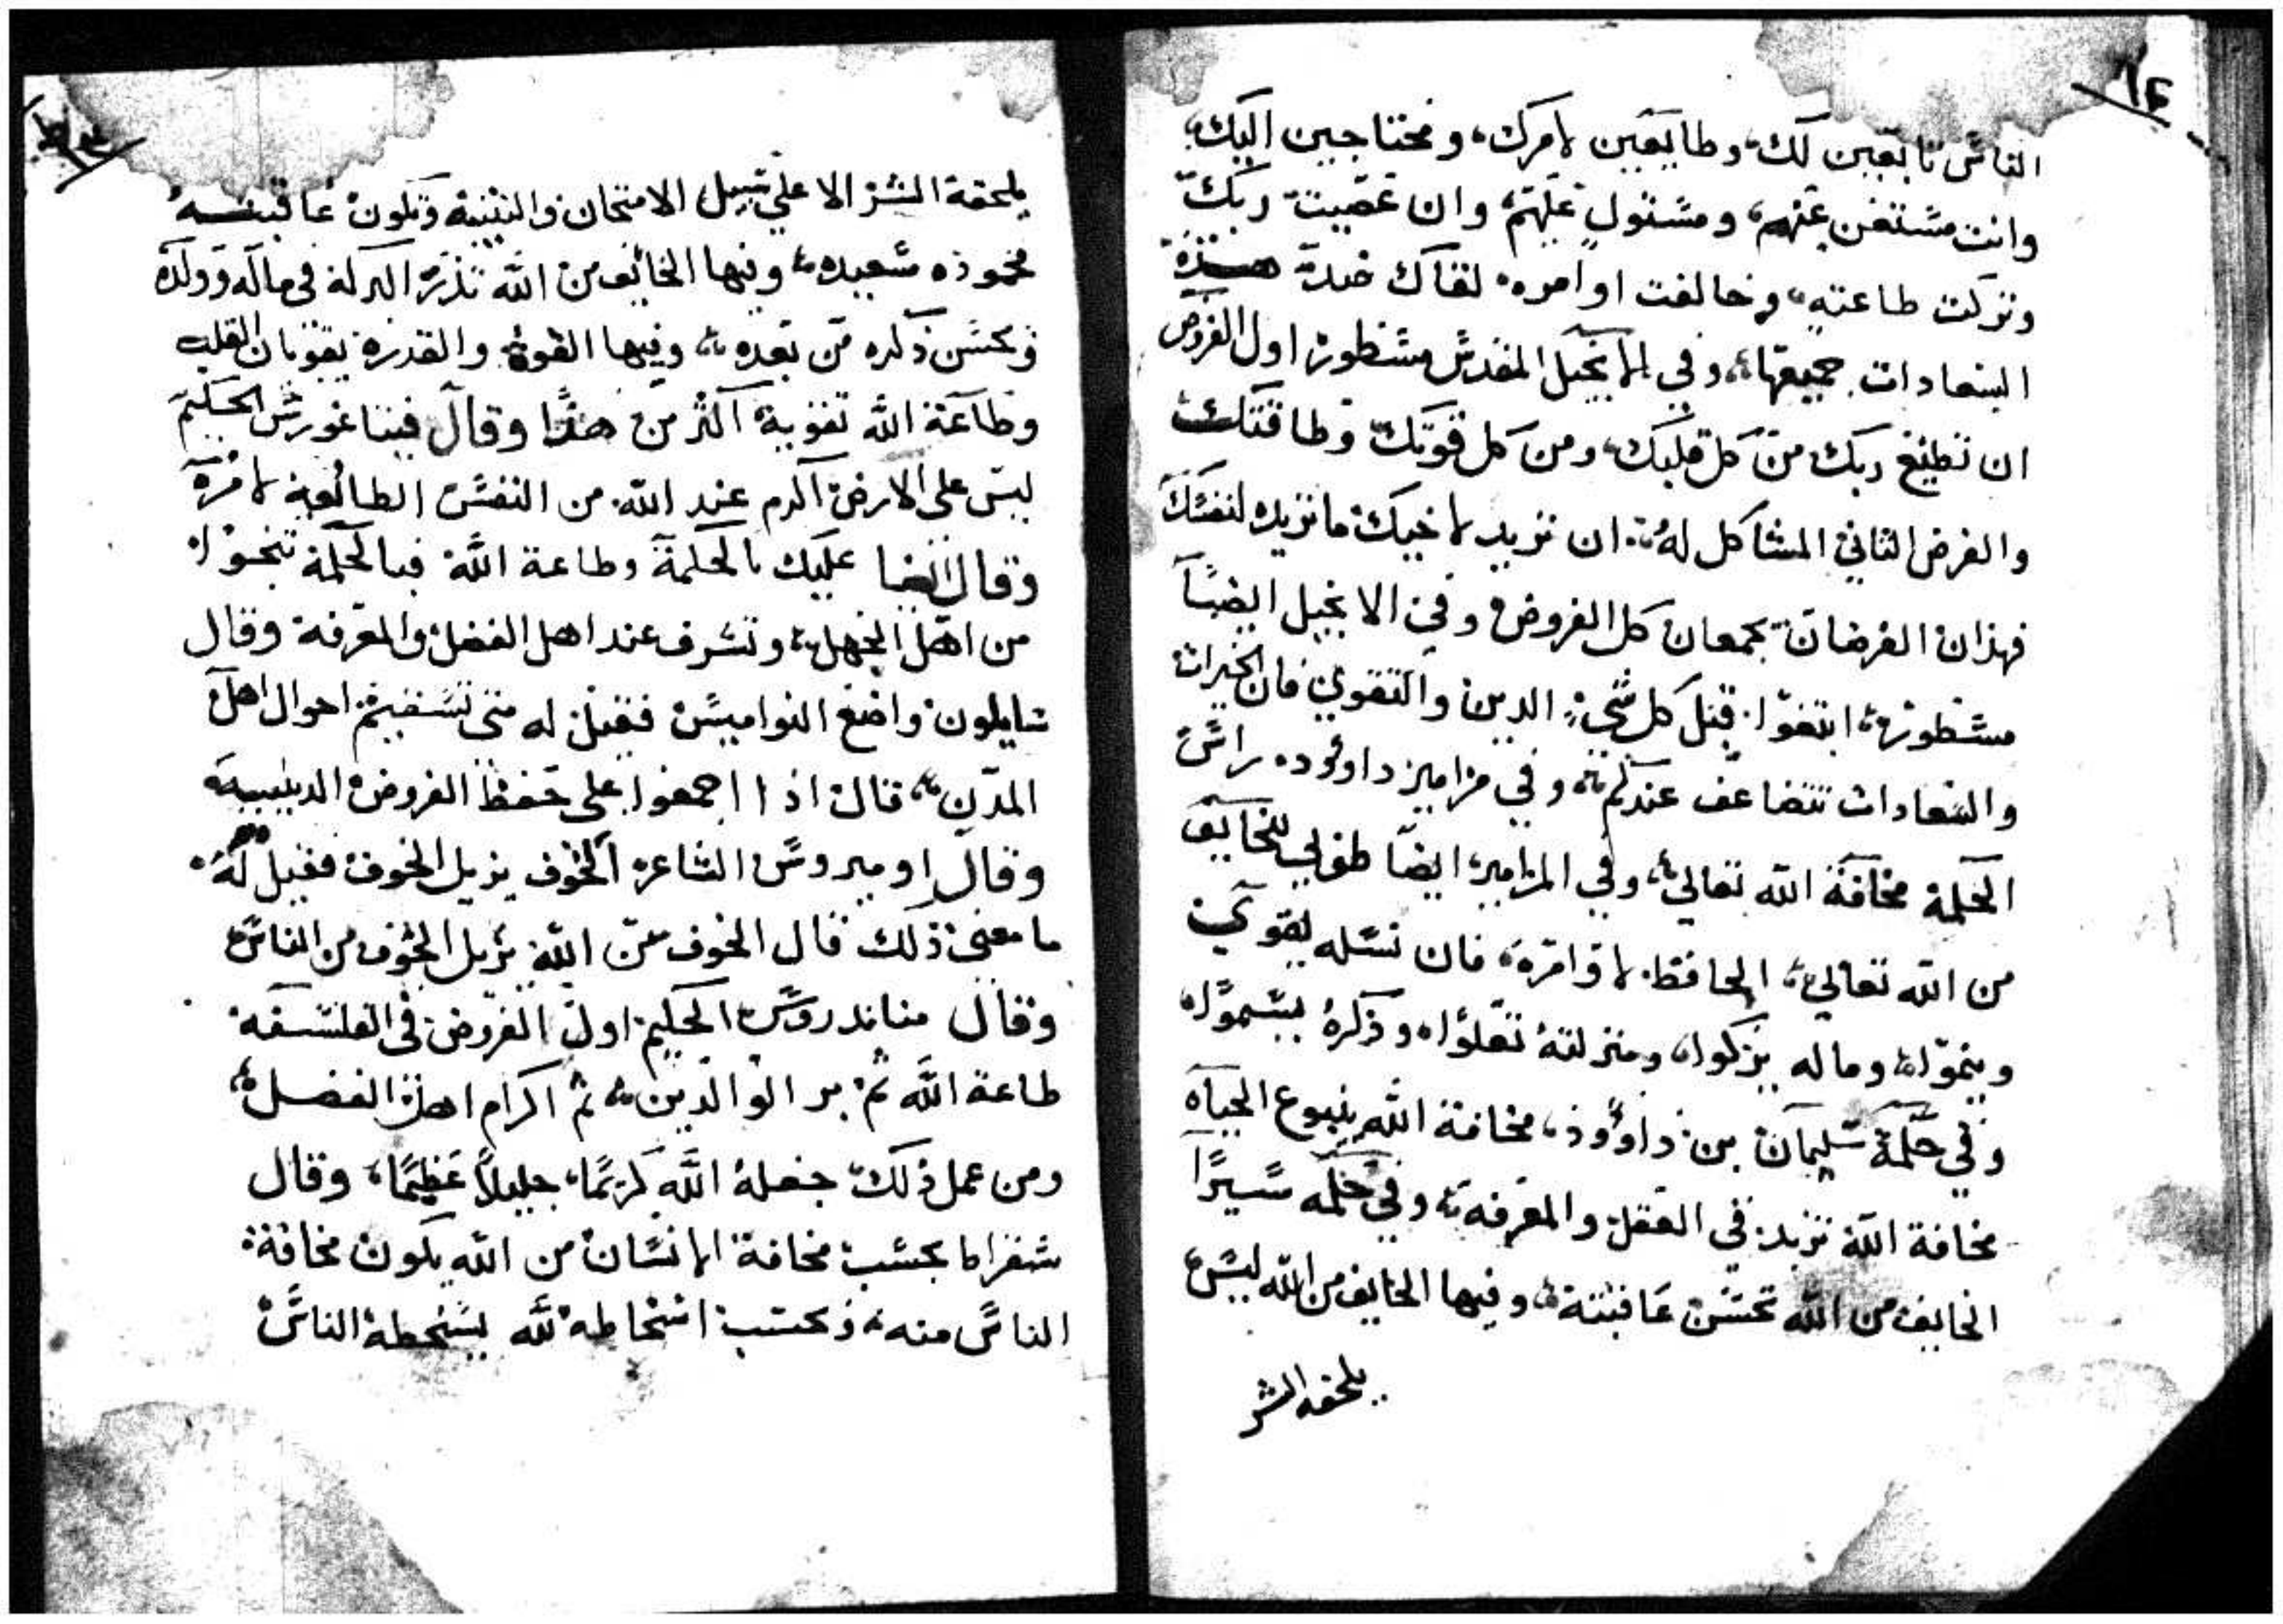 ١٢
الناس تابعين لك، وطايعين لامرك، ومحتاجين اليك،
وانت مستغن عنهم، ومستول عليهم، وان عصيت ربك
وتركت طاعته، وخالفت اوامره لقاك ضد هذه
السعادات جميعها، وفي الانجيل المقدس مسطور اول الفروض
ان تطيع ربك من كل قلبك، ومن كل قوتك وطاقتك
والفرض الثاني المشاكل له، ان تريد لاخيك ما تريده لنفسك
فهذان الفرضان يجمعان كل الفروض، وفي الانجيل ايضاً
مسطور، ابتغوا قبل كل شيء الدين والتقوي فان الخيرات
والسعادات تتضاعف عندكم، وفي مزامير داوود راس
الحكمة مخافة الله تعالي، وفي المزامير ايضاً طوبي للخايف
من الله تعالي، الحافظ لاوامره، فان نسله يقوي
وينموا، وماله يزكوا، ومنزلته تعلوا، وذكره يسموا،
وفي حكمة سليمان بن داوود، مخافة الله ينبوع الحياه
مخافة الله تزيد في العقل والمعرفة، وفي حكمه سيرا
الخايف من الله تحسن عاقبته، وفيها الخايف من الله ليس
يلحقه الشر
يلحقه الشر الا علي سبيل الامتحان والتنبيه وتكون عاقبته
محموده سعيده، وفيها الخائف من الله تذر البركة في ماله وولده
ويحسن ذكره من بعده، وفيها القوة والقدرة يقويان القلب
وطاعة الله تقويه اكثر من هذا وقال فيثاغورس الحكيم
ليس على الارض اكرم عند الله من النفس الطائعة لامره
وقال ايضا عليك بالحكمة وطاعة الله فبالحكمة تنجوا
من اهل الجهل، وتشرف عند اهل الفضل والمعرفة وقال
واضع النواميس فقيل له متى تستقيم احوال اهل
المدن، قال اذا اجمعوا علي حفظ الفروض الدينيه
وقال اوميروس الشاعر الخوف يزيل الخوف فقيل له
ما معنى ذلك قال الخوف من الله يزيل الخوف من الناس
وقال مناندروس الحكيم اول الفروض في الفلسفه
طاعة الله ثم بر الوالدين، ثم اكرام اهل الفضل،
ومن عمل ذلك جعله الله كريماً، جليلاً عظيماً، وقال
سقراط بحسب مخافة الانسان من الله يكون مخافة
الناس منه، وبحسب اسخاطه لله يسخطه الناس